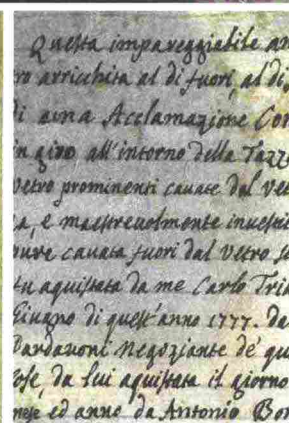 Questa impareggiabile an
ro arricchita al di fuori, al di
di una Acclamazione Con
in giro all'intorno della Tazz
vetro prominenti cavate dal vet
a, e maestrevolmente investi
pure cavata fuori dal vetro
fu aquistata da me Carlo Triv
Giugno di quest'anno 1777. da
Dardanoni Negoziante de' qu
ose, da lui aquistata il giorno
mese ed anno da Antonio Bor